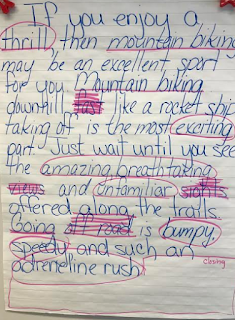 If you enjoy a
thrill, then mountain biking
may be an excellent sport
for you. Mountain biking
downhill fast like a rocket ship
taking off is the most exciting
part. Just wait until you see
the amazing, breathtaking
views and unfamiliar sights
offered along the trails.
Going off road is bumpy,
speedy and such an
adreneline rush.
closing